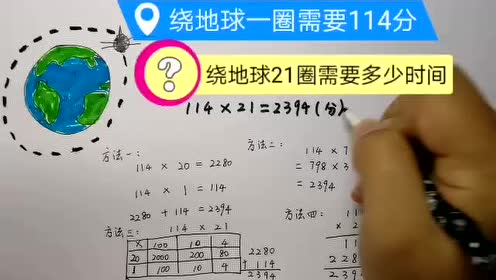 绕地球一圈需要114分
绕地球21圈需要多少时间
114×21=2394(分)
方法一:
114 × 20 = 2280
114 × 1 = 114
2280 + 114 = 2394
方法二:
114 × 7
= 798 × 3
= 2394
方法三: 114 × 21
× 100 10 4
20 2000 200 80
1 100 10 4
2280
+ 114
2394
方法四:
114
× 2
11
228
239